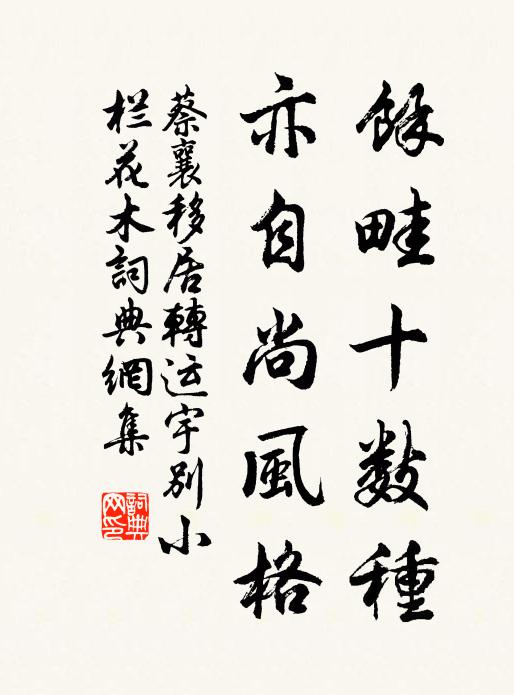 餘畦十数種
亦自尚風格
蔡襄移居轉运宇别小
栏花木詞典網集
詞典
网印